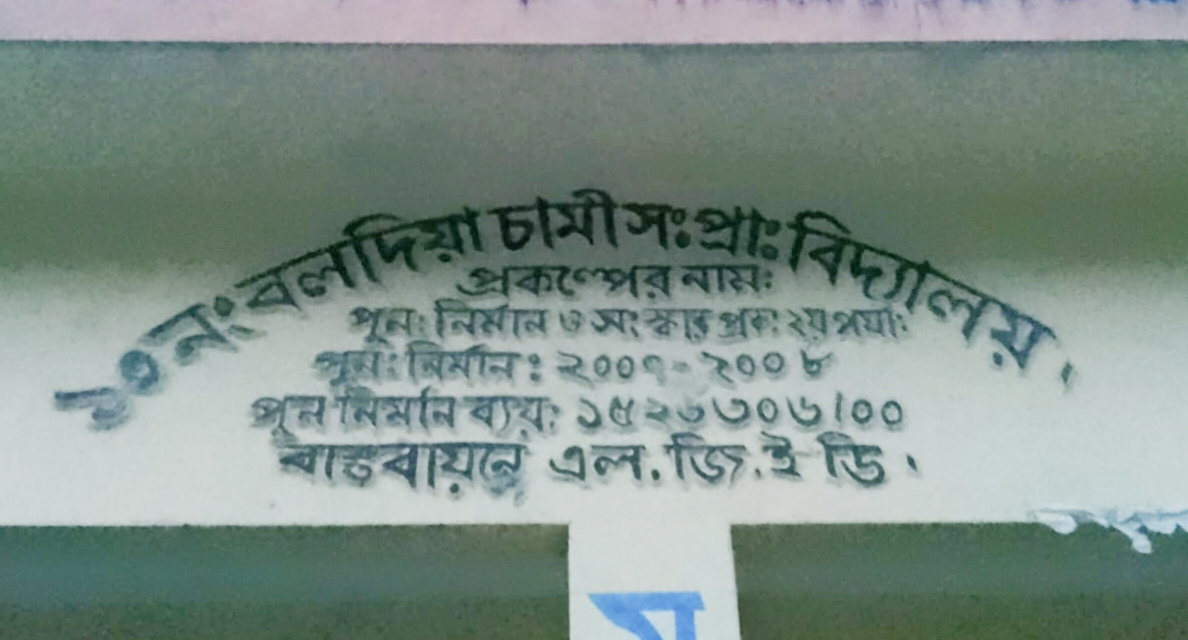 ১৩নং বলদিয়া চামী সঃ প্রাঃ বিদ্যালয়।
প্রকল্পের নামঃ
পুনঃ নির্মান ও সংস্কার প্রকঃ ২য় পর্যাঃ
পুনঃ নির্মান : ২০০৭-২০০৮
পুন নির্মান ব্যয়ঃ ১৫২৬৩০৬/০০
বাস্তবায়নে এল.জি.ই ডি.